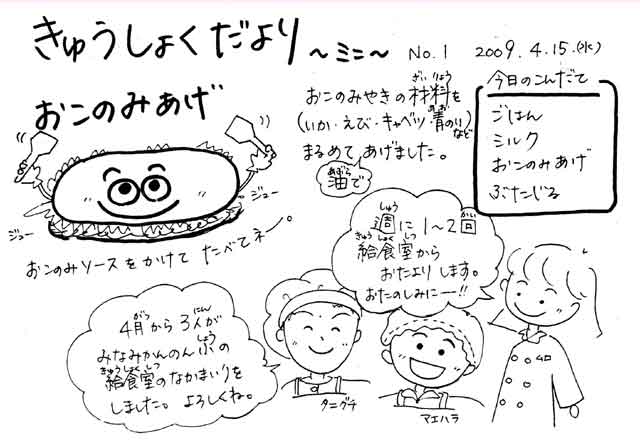 きゅうしょくだより ～ミニ～ No.1 2009.4.15.(水)
おこのみあげ
おこのみやきの材料を
ざいりょう
(いか・えび・キャベツ・青のりなど
あお
まるめて あげました。
油で
あぶら
今日のこんだて
ごはん
ミルク
おこのみあげ
ぶたじる
ジュー
ジュー
おこのみソースをかけて たべてネー。
週に1～2回
しゅう
かい
給食室から
きゅうしょくしつ
おたよりします。
おたのしみにー!!
4月から3人が
がつ
にん
みなみかんのん小の
しょう
給食室のなかまいりを
きゅうしょくしつ
しました。よろしくね。
タニグチ
マエハラ